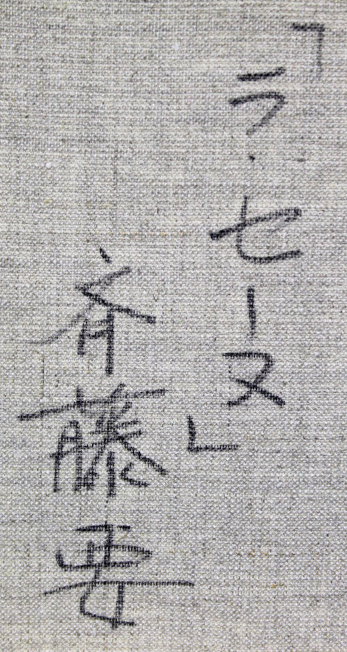 「ラ・セーヌ」
斉藤要